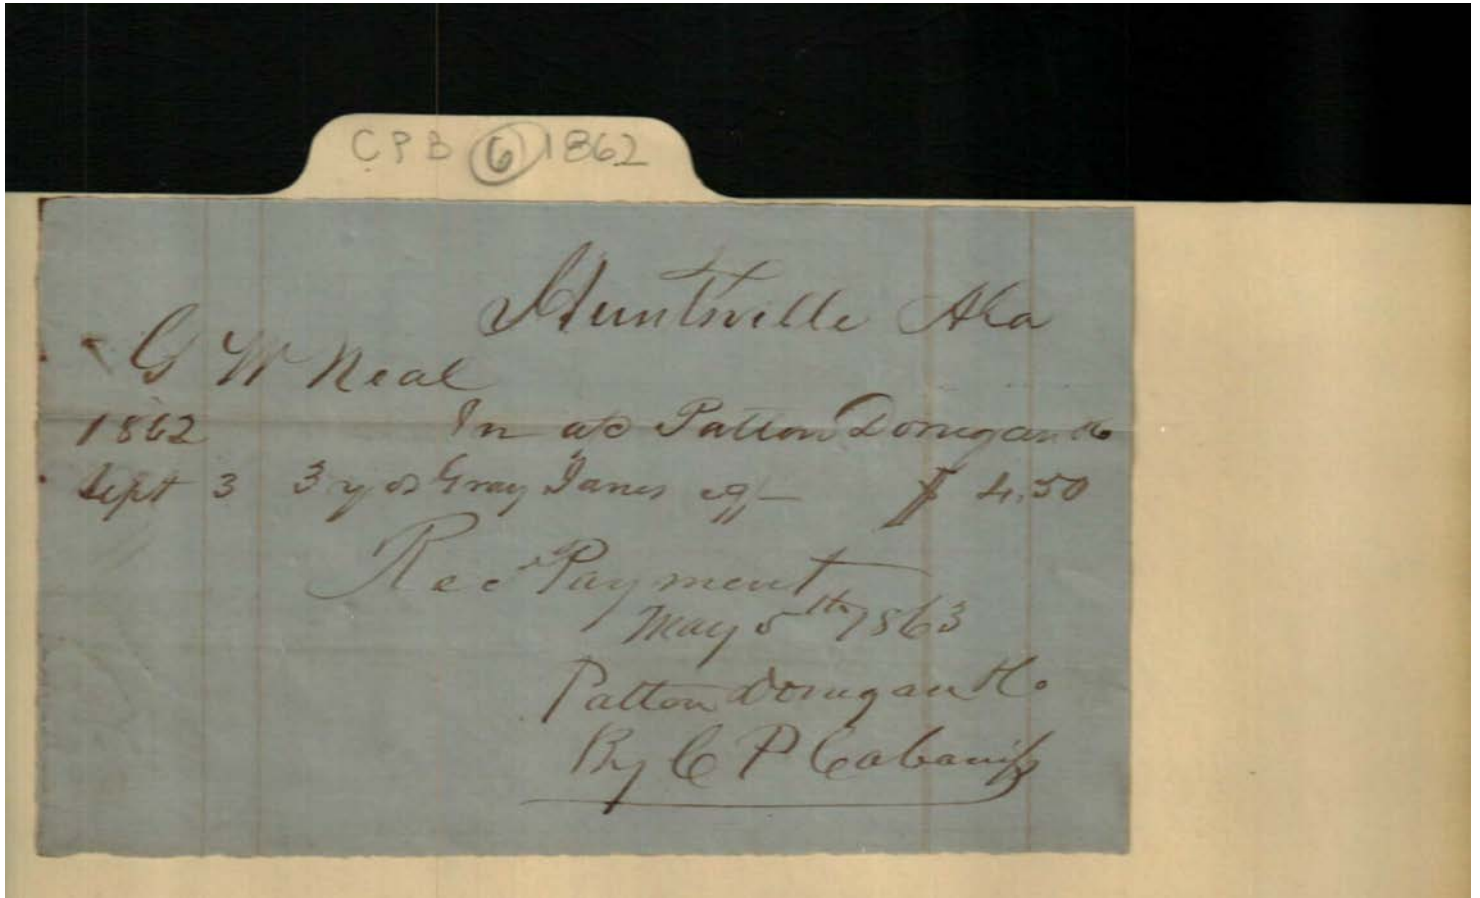 CPB 6 1862
Huntsville Ala
G W Neal
1862 In a/c Patton Donegan & Co
Sept 3 3 yds Gray Janes $ 4.50
Recd Payment
May 5th 1863
Patton Donegan & Co
By C P Cabaniss